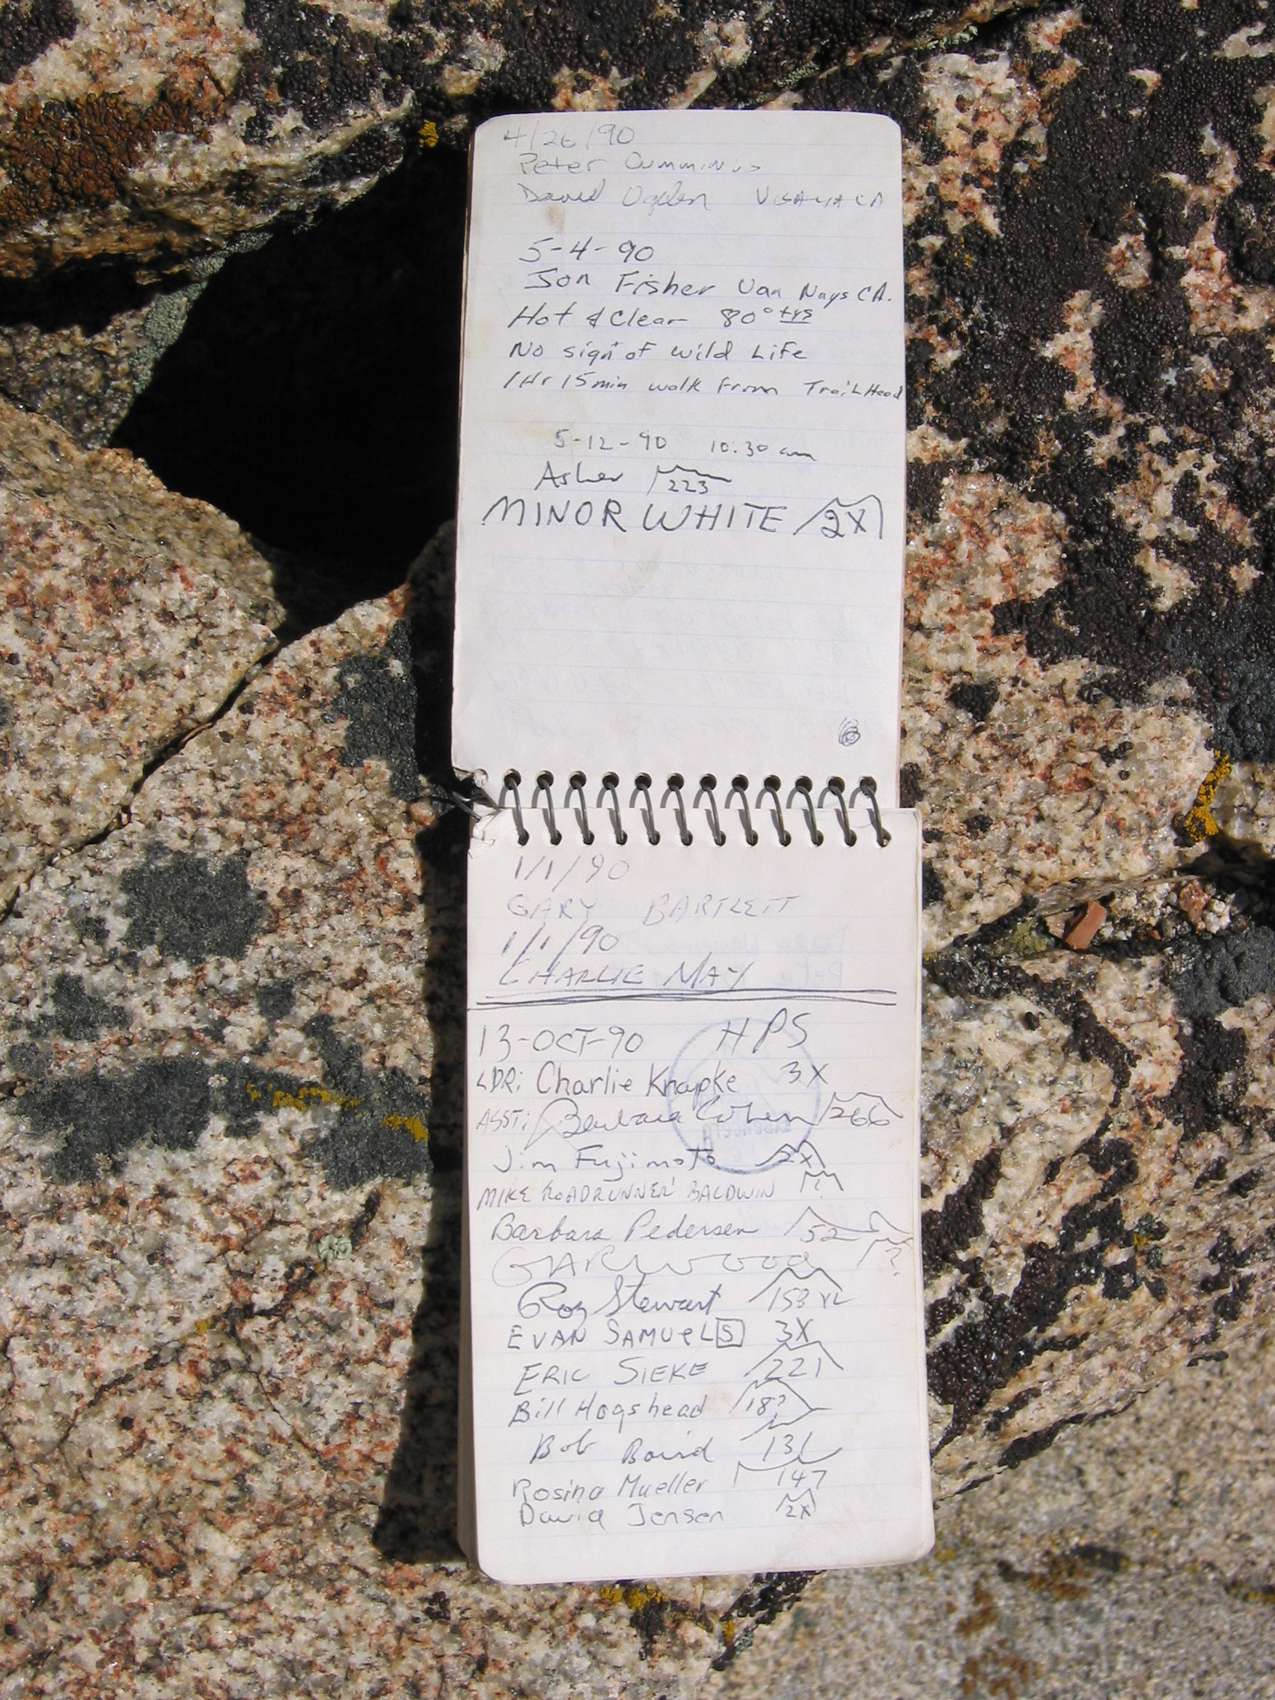 4/26/90
Peter Cummings
David Ogden VISALIA CA
5-4-90
Jon Fisher Van Nuys CA.
Hot & Clear 80°
No sign of wild Life
1 Hr 15 min walk from TraiL Head
5-12-90 10:30 am
Asher 223
MINOR WHITE 2X
1/1/90
GARY BARTLETT
1/1/90
CHARLIE MAY
13-OCT-90 HPS
LDR: Charlie Knapke 3X
ASST: Barbara Cohen 266
Jim Fujimoto 2X
MIKE 'ROADRUNNER' BALDWIN 1?
Barbara Pedersen 52
GARWOOD ?
Roz Stewart 153
EVAN SAMUELS 3X
ERIC SIEKE 221
Bill Hogshead 18?
Bob Baird 131
Rosina Mueller 147
David Jensen 2X